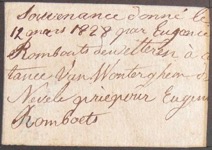 Souvenance donné le
12 mars 1828 par Eugenie
Romboets à
tance Van Wonterghem
Nevele priez pour Eugen
Romboets